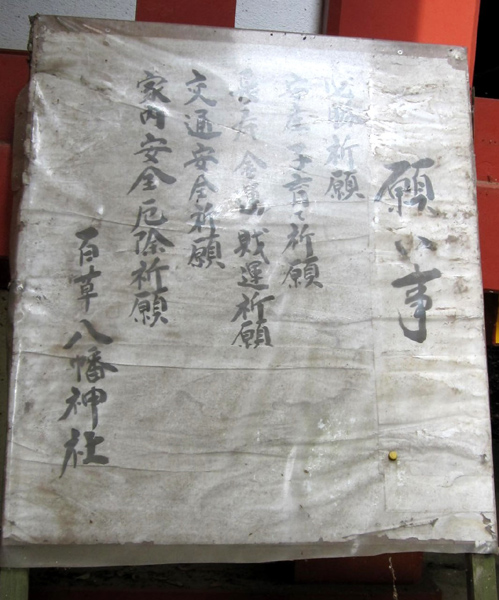 願い事
必勝祈願
安産子育て祈願
金運財運祈願
交通安全祈願
家内安全厄除祈願
百草八幡神社